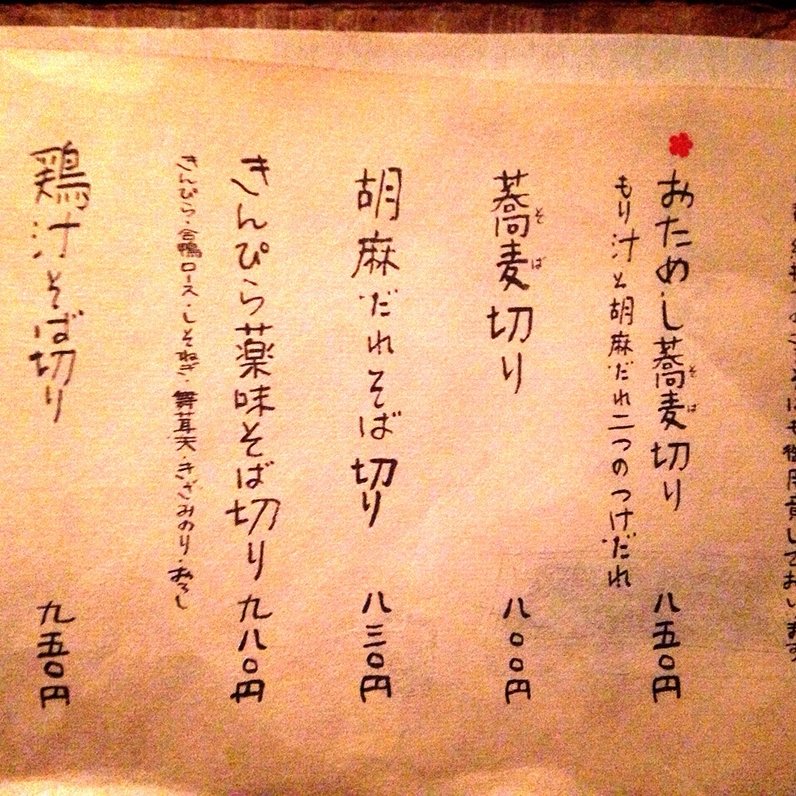 おためし蕎麦切り 八五〇円
そば
もり汁と胡麻だれ二つのつけだれ
蕎麦切り 八〇〇円
そば
胡麻だれそば切り 八三〇円
きんぴら薬味そば切り 九八〇円
きんぴら・合鴨ロース・しそねぎ・舞茸天・きざみのり・おろし
鶏汁そば切り 九五〇円